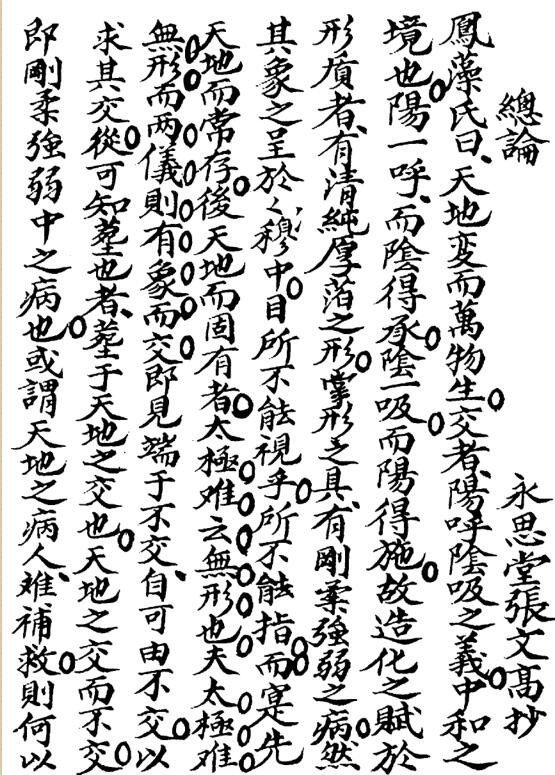 總論 永思堂張文髙抄
鳳藻氏曰、天地変而萬物生。交者、陽呼陰吸之義。中和之
境也。陽一呼、而陰得承。陰一吸而陽得施。故造化之賦於
形质者、有清純厚萡之形。掌形之具、有剛柔強弱之病。然
其象之呈於〻穆中。目所不能視乎。所不能指。而寔先
天地而常存。後天地而固有者。太極难云無形也。夫太極难
無形而两儀則有象而交。即見端于不交、自可由不交。以
求其交。從可知墓也者、墓于天地之交也。天地之交而不交。
即剛柔強弱中之病也。或謂天地之病人难、補救。則何以